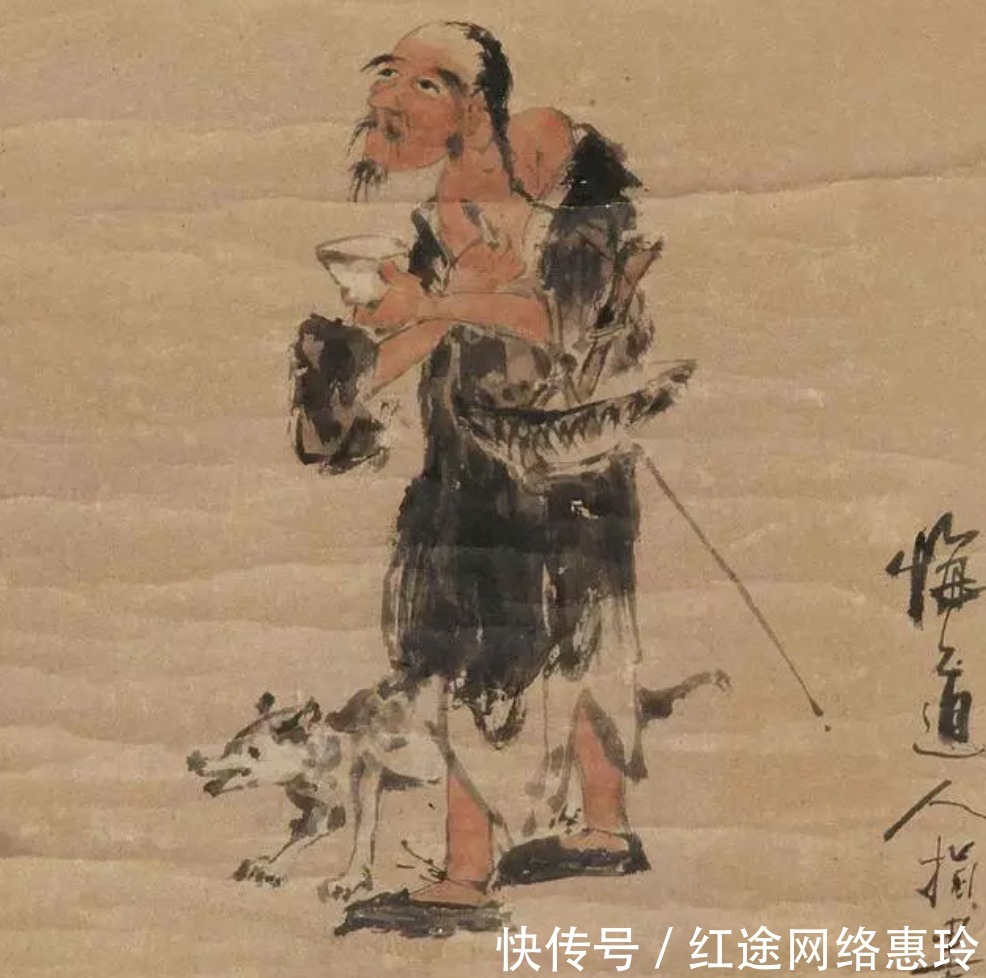 悔道人
快传号 / 红途网络惠玲